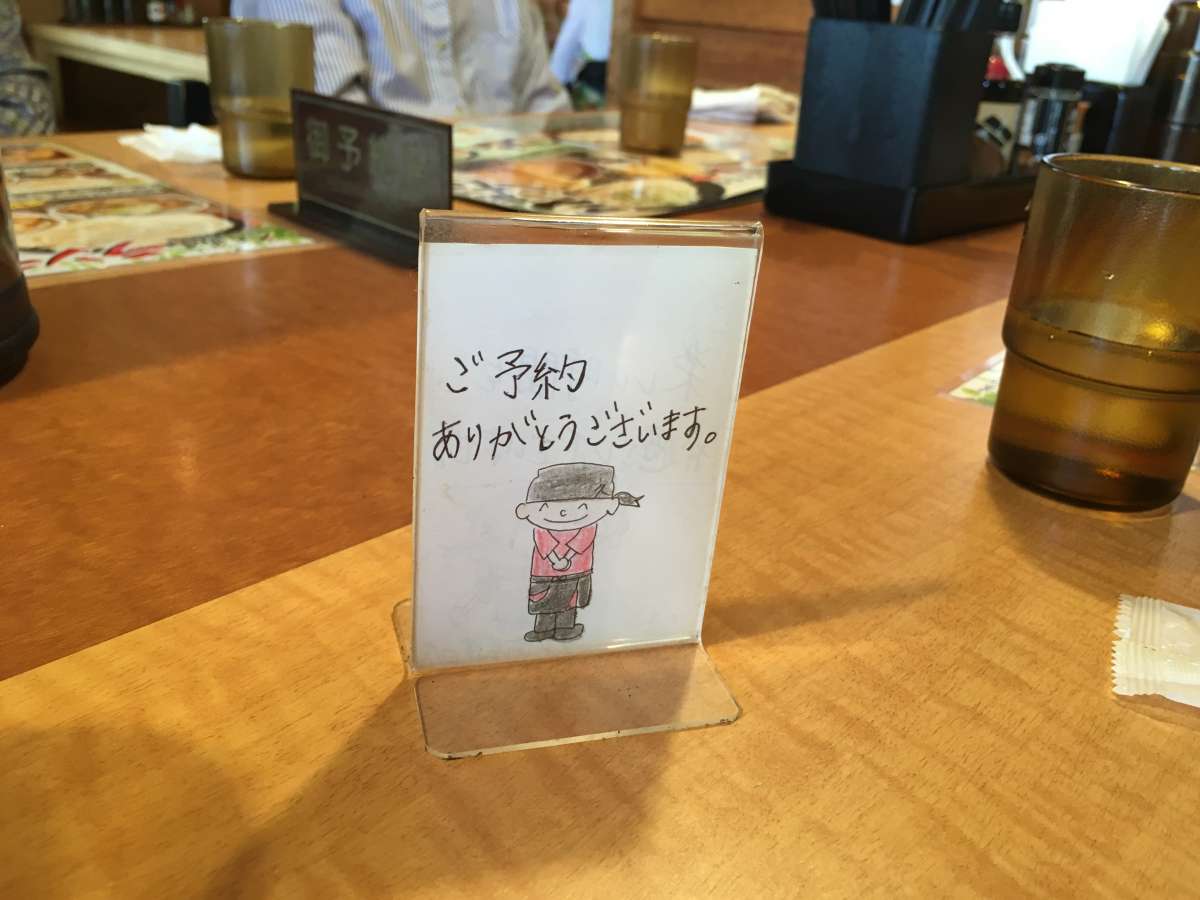 御予
ご予約
ありがとうございます。